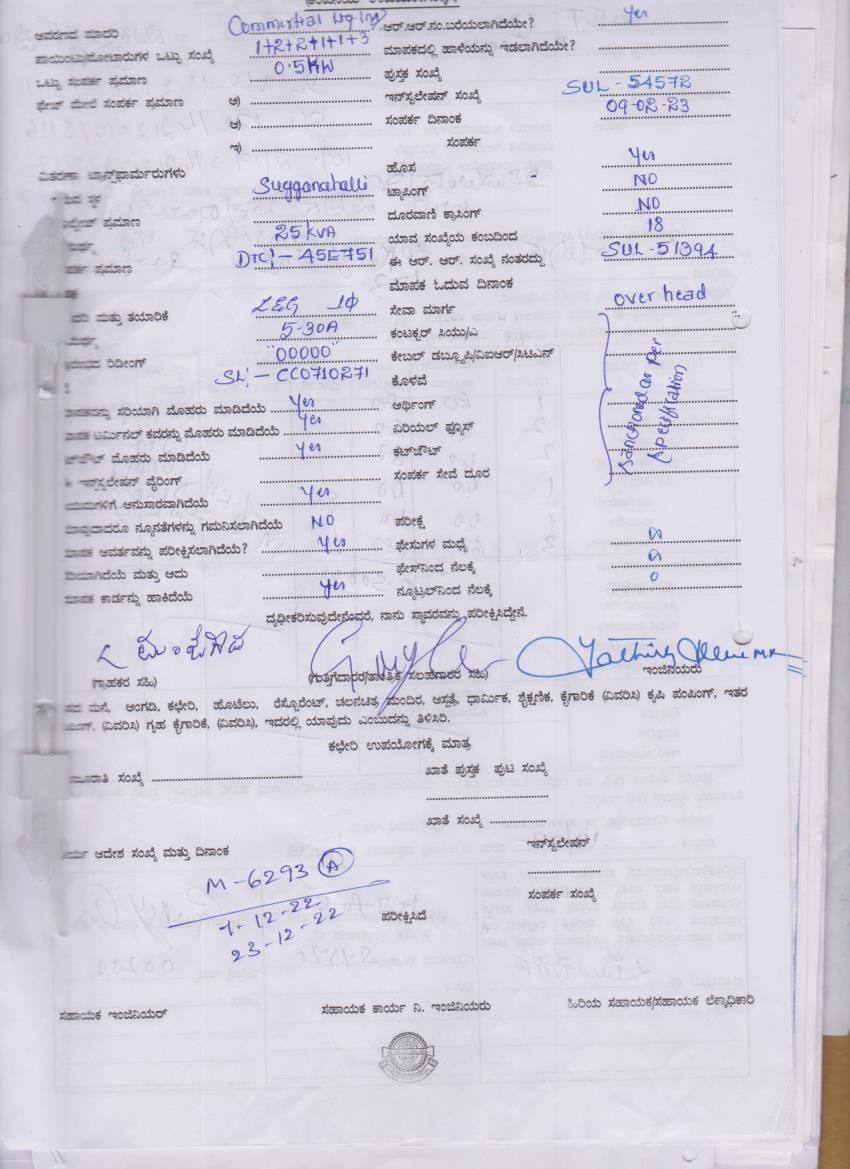 ಆವರಣದ ಮಾದರಿ Commertial Lighting ಆರ್.ಆರ್.ನಂ.ಬರೆಯಲಾಗಿದೆಯೇ? Yes
ಪಾಯಿಂಟು/ಮೋಟಾರುಗಳ ಒಟ್ಟು ಸಂಖ್ಯೆ 1+2+2+1+1+3 ಮಾಪಕದಲ್ಲಿ ಹಾಳೆಯನ್ನು ಇಡಲಾಗಿದೆಯೇ?
ಒಟ್ಟು ಸಂಪರ್ಕ ಪ್ರಮಾಣ 0.5KW ಪುಸ್ತಕ ಸಂಖ್ಯೆ
ಫೇಜ್ ಮೇಲೆ ಸಂಪರ್ಕ ಪ್ರಮಾಣ ಅ) ಇನ್‌ಸ್ಟಲೇಷನ್ ಸಂಖ್ಯೆ SUL-54572
ಆ) ಸಂಪರ್ಕ ದಿನಾಂಕ 09-02-23
ಇ) ಸಂಪರ್ಕ
ವಿತರಣಾ ಟ್ರಾನ್ಸ್‌ಫಾರ್ಮರುಗಳು ಹೊಸ Yes
ಸ್ಥಳ Sugganahalli ಟ್ಯಾಪಿಂಗ್ NO
ಪ್ರಮಾಣ ದೂರವಾಣಿ ಕ್ರಾಸಿಂಗ್ NO
25 KVA ಯಾವ ಸಂಖ್ಯೆಯ ಕಂಬದಿಂದ 18
ಪ್ರಮಾಣ DTC:- 45E751 ಈ ಆರ್. ಆರ್. ಸಂಖ್ಯೆ ನಂತರದ್ದು SUL-51394
ಮಾಪಕ ಓದುವ ದಿನಾಂಕ
ಮತ್ತು ತಯಾರಿಕೆ L&G 1Φ ಸೇವಾ ಮಾರ್ಗ over head
5-30A ಕಂಟಕ್ಟರ್ ಸಿಯು/ಎ
ರಿಡೀಂಗ್ "00000" ಕೇಬಲ್ ಡಬ್ಲ್ಯೂಪಿ/ವಿಐಆರ್/ಸಿಟಿಎಸ್
SL:- CC0710271 ಕೊಳವೆ
ಸರಿಯಾಗಿ ಮೊಹರು ಮಾಡಿದೆಯೆ Yes ಅರ್ಥಿಂಗ್
ಟರ್ಮಿನಲ್ ಕವರನ್ನು ಮೊಹರು ಮಾಡಿದೆಯೆ Yes ಏರಿಯಲ್ ಫ್ಯೂಸ್
ಮೊಹರು ಮಾಡಿದೆಯೆ Yes ಕಟ್‌ಔಟ್
ಇನ್‌ಸ್ಟಲೇಷನ್ ವೈರಿಂಗ್ ಸಂಪರ್ಕ ಸೇವೆ ದೂರ
ಅನುಸಾರವಾಗಿದೆಯೆ Yes
Sanctioned as per
specification
ನ್ಯೂನತೆಗಳನ್ನು ಗಮನಿಸಲಾಗಿದೆಯೆ NO ಪರೀಕ್ಷೆ
ಆವರ್ತವನ್ನು ಪರೀಕ್ಷಿಸಲಾಗಿದೆಯೆ? Yes ಫೇಸುಗಳ ಮಧ್ಯೆ
ಮತ್ತು ಅದು ಫೇಸ್‌ನಿಂದ ನೆಲಕ್ಕೆ
ಕಾರ್ಡನ್ನು ಹಾಕಿದೆಯೆ Yes ನ್ಯೂಟ್ರಲ್‌ನಿಂದ ನೆಲಕ್ಕೆ 0
ದೃಢೀಕರಿಸುವುದೇನೆಂದರೆ, ನಾನು ಸ್ಥಾವರವನ್ನು ಪರೀಕ್ಷಿಸಿದ್ದೇನೆ.
(ಗ್ರಾಹಕರ ಸಹಿ) (ಗುತ್ತಿಗೆದಾರರ/ತಾಂತ್ರಿಕ ಸಲಹೆಗಾರರ ಸಹಿ) ಇಂಜಿನಿಯರು
ಮನೆ, ಅಂಗಡಿ, ಕಛೇರಿ, ಹೊಟೆಲು, ರೆಸ್ಟೋರೆಂಟ್, ಚಲನಚಿತ್ರ ಮಂದಿರ, ಆಸ್ಪತ್ರೆ, ಧಾರ್ಮಿಕ, ಶೈಕ್ಷಣಿಕ, ಕೈಗಾರಿಕೆ (ವಿವರಿಸಿ) ಕೃಷಿ ಪಂಪಿಂಗ್, ಇತರ
(ವಿವರಿಸಿ) ಗೃಹ ಕೈಗಾರಿಕೆ, (ವಿವರಿಸಿ), ಇದರಲ್ಲಿ ಯಾವುದು ಎಂಬುದನ್ನು ತಿಳಿಸಿರಿ.
ಕಛೇರಿ ಉಪಯೋಗಕ್ಕೆ ಮಾತ್ರ
ಸಂಖ್ಯೆ ಖಾತೆ ಪುಸ್ತಕ ಪುಟ ಸಂಖ್ಯೆ
ಖಾತೆ ಸಂಖ್ಯೆ
ಆದೇಶ ಸಂಖ್ಯೆ ಮತ್ತು ದಿನಾಂಕ ಇನ್‌ಸ್ಟಲೇಷನ್
M-6293 A
ಸಂಪರ್ಕ ಸಂಖ್ಯೆ
1-12-22
23-12-22 ಪರೀಕ್ಷಿಸಿದೆ
ಸಹಾಯಕ ಇಂಜಿನಿಯರ್ ಸಹಾಯಕ ಕಾರ್ಯ ನಿ. ಇಂಜಿನಿಯರು ಹಿರಿಯ ಸಹಾಯಕ/ಸಹಾಯಕ ಲೆಕ್ಕಾಧಿಕಾರಿ